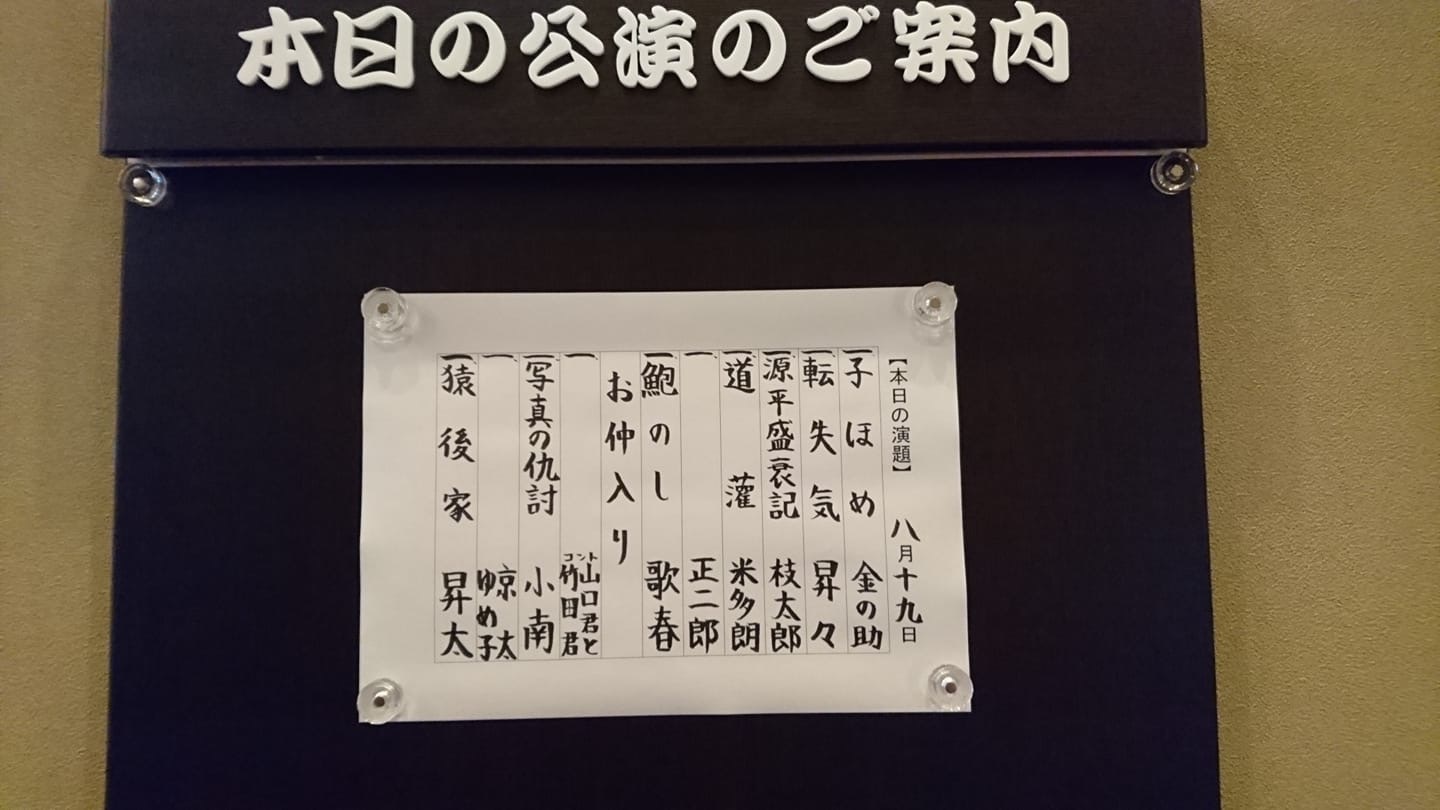 本日の公演のご案内
【本日の演題】 八月十九日
一、子ほめ 金の助
一、転失気 昇々
一、源平盛衰記 枝太郎
一、道灌 米多朗
一、 正二郎
一、鮑のし 歌春
お仲入り
一、 コント山口君と竹田君
一、写真の仇討 小南
一、 京太 ゆめ子
一、猿後家 昇太